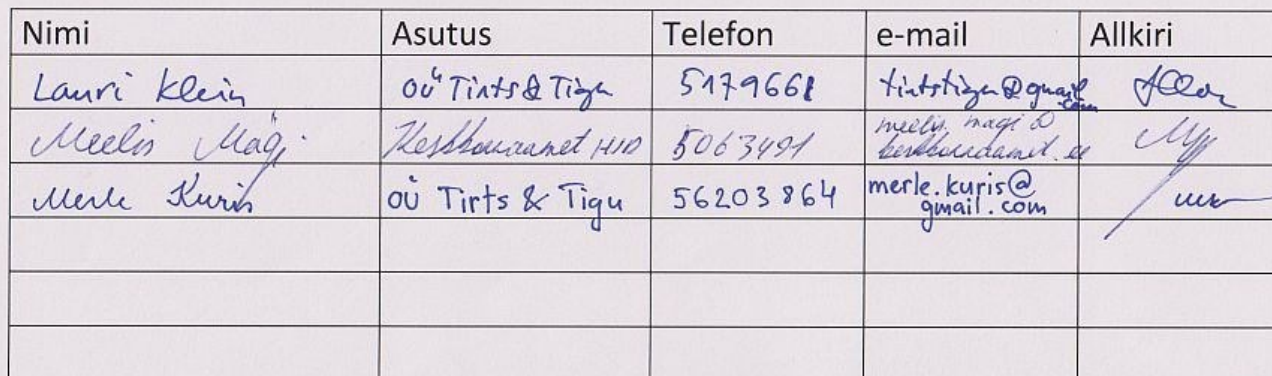 Nimi Asutus Telefon e-mail Allkiri
Lauri Klein OÜ Tirts & Tigu 5179661 tirtstigu@gmail.com
Meelis Mägi Keskkonnaamet HIO 5063491 meelis.magi@
keskkonnaamet.ee
Merle Kuris OÜ Tirts & Tigu 56203864 merle.kuris@
gmail.com